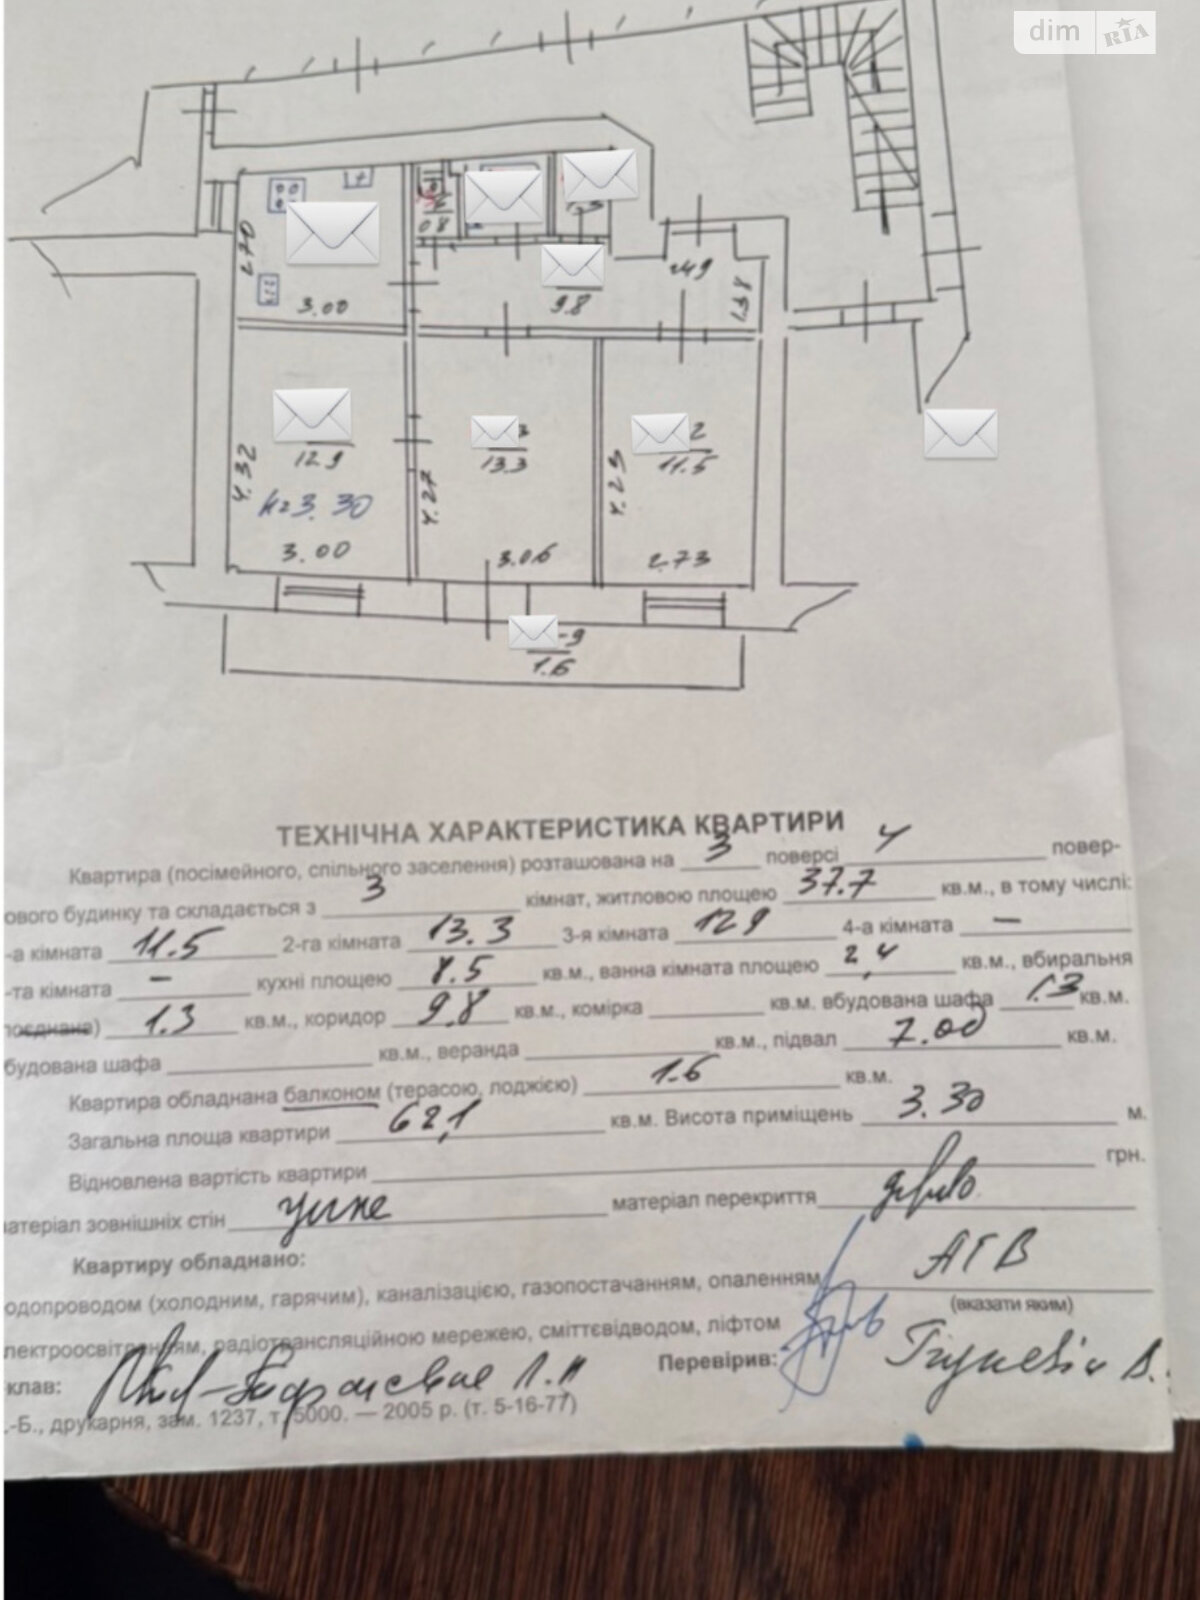 dim RIA
0.8
1.3
2.70
3.00
9.8
2.49
1.58
12.9
4.32
h=3.30
3.00
3
13.3
4.27
3.06
2
11.5
4.23
2.73
-9
1.6
ТЕХНІЧНА ХАРАКТЕРИСТИКА КВАРТИРИ
Квартира (посімейного, спільного заселення) розташована на 3 поверсі 4 повер-
ового будинку та складається з 3 кімнат, житловою площею 37.7 кв.м., в тому числі:
-а кімната 11.5 2-га кімната 13.3 3-я кімната 12.9 4-а кімната —
-та кімната — кухні площею 8.5 кв.м., ванна кімната площею 2,4 кв.м., вбиральня
поєднана) 1.3 кв.м., коридор 9.8 кв.м., комірка кв.м. вбудована шафа 1.3 кв.м.
будована шафа кв.м., веранда кв.м., підвал 7.00 кв.м.
Квартира обладнана балконом (терасою, лоджією) 1.6 кв.м.
Загальна площа квартири 62,1 кв.м. Висота приміщень 3.30 м.
Відновлена вартість квартири грн.
матеріал зовнішніх стін матеріал перекриття дерево
Квартиру обладнано:
одопроводом (холодним, гарячим), каналізацією, газопостачанням, опаленням АГВ
(вказати яким)
лектроосвітленням, радіотрансляційною мережею, сміттєвідводом, ліфтом
клав: Перевірив:
.-Б., друкарня, зам. 1237, т. 5000. — 2005 р. (т. 5-16-77)